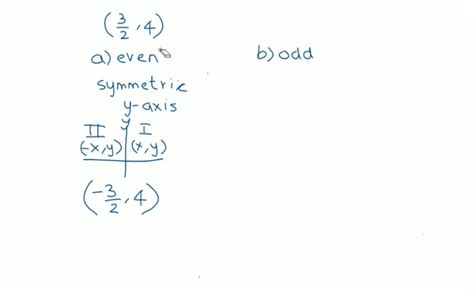 (3/2, 4)
a) even
b) odd
symmetric
y-axis
y
II I
(-x, y) (x, y)
(-3/2, 4)